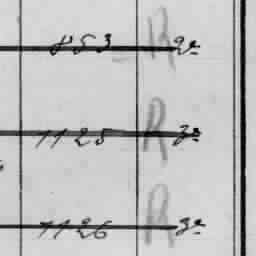 853 R 2e
1125 R 3e
1126 R 3e